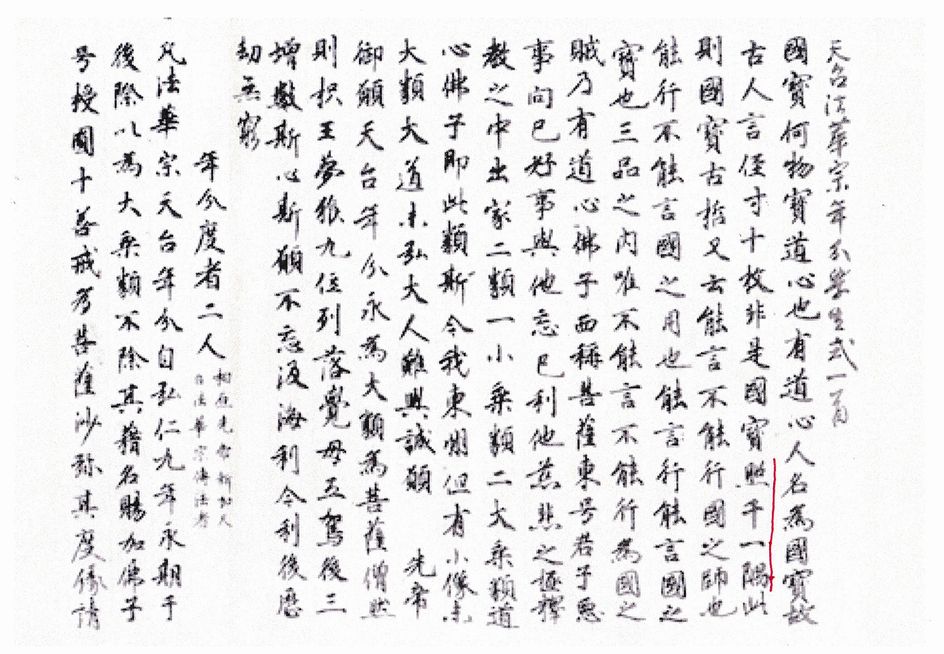 天台法華宗年分學生式一首
國寶何物寶道心也有道心人名為國寶故
古人言徑寸十枚非是國寶照千一隅此
則國寶古哲又云能言不能行國之師也
能行不能言國之用也能言行能言國之
寶也三品之内唯不能言不能行為國之
賊乃有道心佛子西稱菩薩東号君子惡
事向己好事與他忘己利他慈悲之極釋
教之中出家二類一小乘類二大乘類道
心佛子即此類斯今我東州但有小像未
大類大道未弘大人難興誠願 先帝
御願天台年分永為大類為菩薩僧然
則枳王夢猴九位列落覺母五駕後三
增數斯心斯願不忘汲海利今利後歷
劫無窮
年分度者二人
柏原先帝新加天
台法華宗傳法者
凡法華宗天台年分自弘仁九年永期于
後際以為大乘類不除其籍名賜加佛子
号授圓十善戒為菩薩沙弥其度緣請